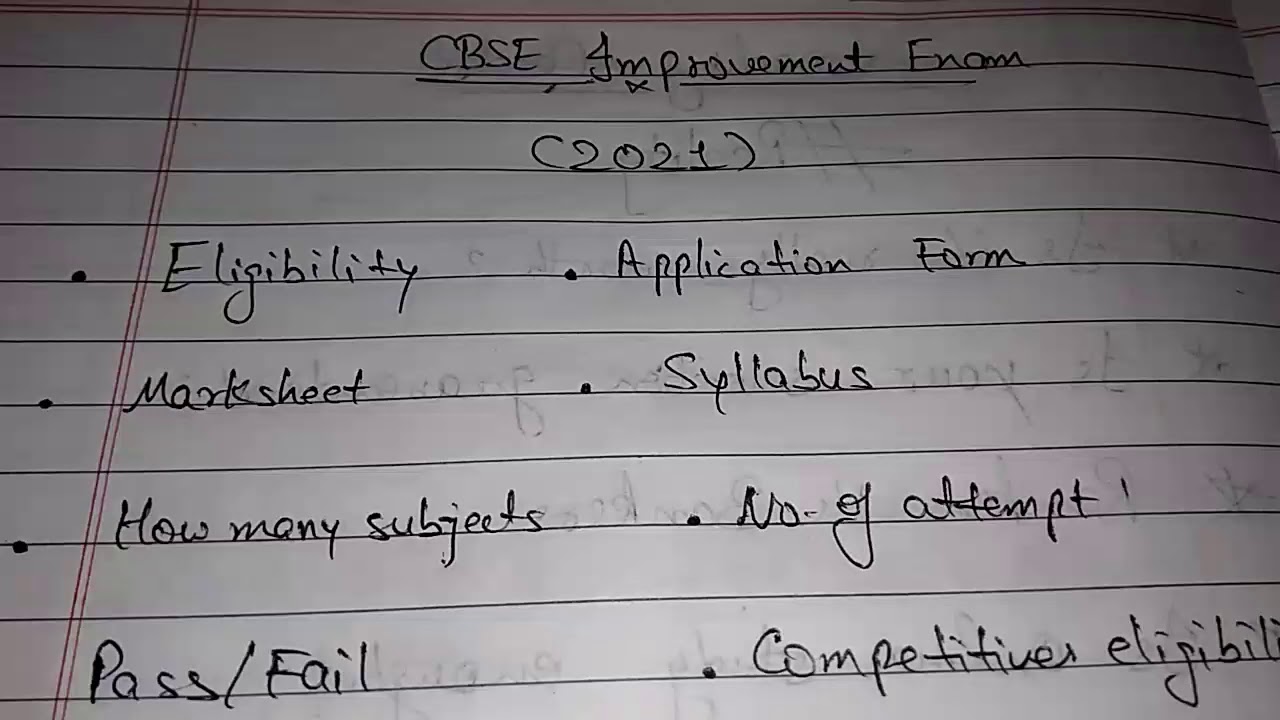 CBSE Improvement Exam
(2021)
• Eligibility • Application Form
• Marksheet • Syllabus
• How many subjects • No. of attempt
Pass/Fail • Competitives eligibili